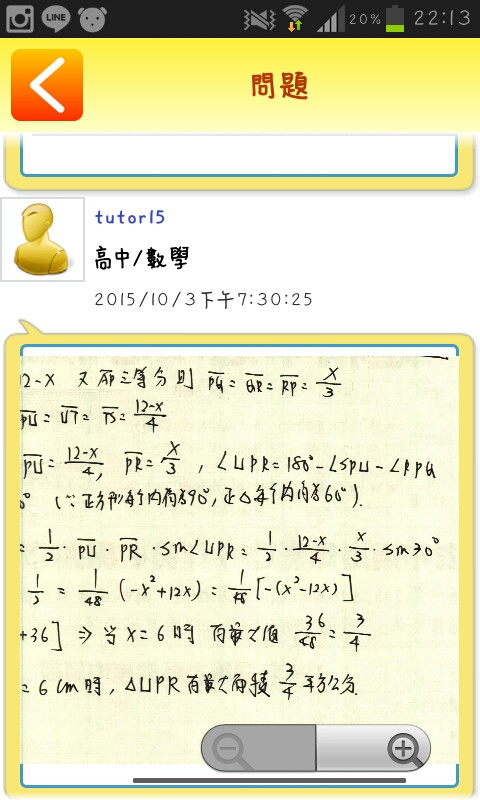 LINE
20%
22:13
問題
tutor15
高中/數學
2015/10/3下午7:30:25
12-x 又 三等分 則 PQ = QR = RP = x/3
PU = UT = TS = 12-x/4
PU = 12-x/4, PR = x/3 , ∠UPR = 180° - ∠SPU - ∠RPQ
0° (∵正方形每個內角為90°, 正△每個內角為60°).
= 1/2 · PU · PR · sin∠UPR = 1/2 · 12-x/4 · x/3 · sin30°
1/2 = 1/48 (-x²+12x) = 1/48 [-(x²-12x)]
+36] ⇒ 當 x = 6 時 有最大值 36/48 = 3/4
= 6 cm 時, △UPR 有最大面積 3/4 平方公分.